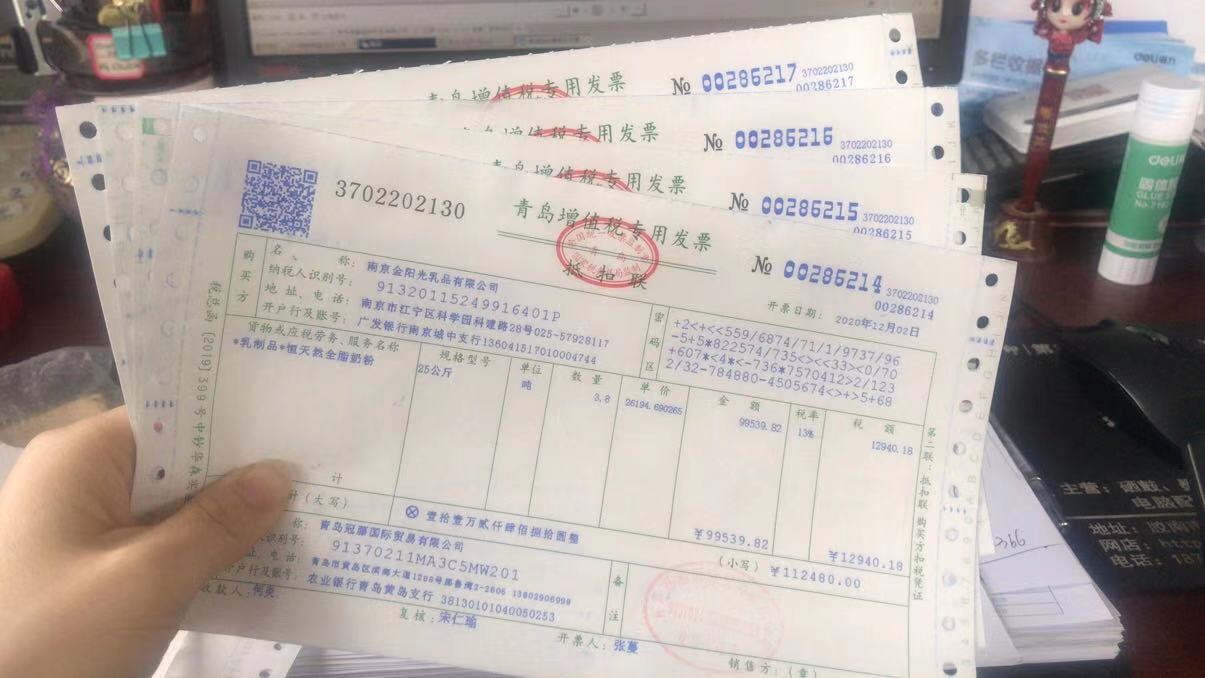 青岛增值税专用发票 № 00286217 3702202130
00286217
青岛增值税专用发票 № 00286216 3702202130
00286216
青岛增值税专用发票 № 00286215 3702202130
00286215
3702202130 青岛增值税专用发票 № 00286214 3702202130
00286214
抵扣联
开票日期: 2020年12月02日
购买方
名 称: 南京金阳光乳品有限公司
纳税人识别号: 91320115249916401P
地址、电话: 南京市江宁区科学园科建路28号025-57928117
开户行及账号: 广发银行南京城中支行136041517010004744
密码区
+2<+<<559/6874/71/1/9737/96
-5+5*822574/735<><<33><0/70
+607*<4*<-736*7570412>2/123
2/32-784880-4505674<>+>5+68
货物或应税劳务、服务名称 规格型号 单位 数量 单价 金额 税率 税额
*乳制品*恒天然全脂奶粉 25公斤 吨 3.8 26194.690265 99539.82 13% 12940.18
计 ¥99539.82 ¥12940.18
(大写) ⊗ 壹拾壹万贰仟肆佰捌拾圆整 (小写) ¥112480.00
称: 青岛冠藤国际贸易有限公司
识别号: 91370211MA3C5MW201
址、电话:
开户行及账号: 农业银行青岛黄岛支行 38130101040050253
备注
收款人: 何炎 复核: 宋仁瑜 开票人: 张蔓 销售方: (章)
第二联:抵扣联 购买方扣税凭证
税总函(2019)399号
多栏收据
deli
deli
固体胶
GLUE S
主营:
电脑配
地址:
网店:
电话: 187